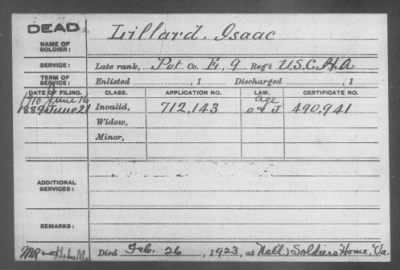 DEAD
NAME OF SOLDIER: Lillard, Isaac
SERVICE: Late rank, Pvt Co. E, 9 Reg't U.S.C.H.A.
TERM OF SERVICE: Enlisted , 1 Discharged , 1
DATE OF FILING. CLASS. APPLICATION NO. LAW. CERTIFICATE NO.
1910 June 16 age
1889 June 21 Invalid, 712,143 o & J 490,941
Widow,
Minor,
ADDITIONAL SERVICES:
REMARKS:
H.L.M. Died Feb. 26, 1923, at Natl Soldiers Home, Va.